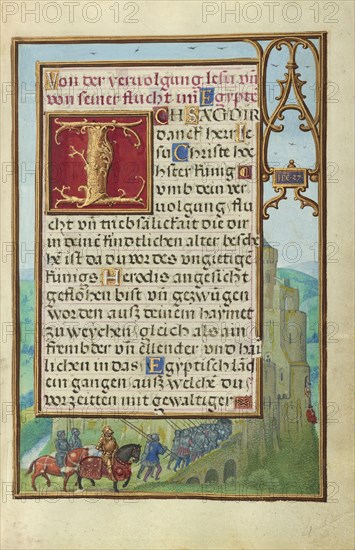 Von der vervolgung Iesu vñ
von seiner flucht inn Egypte
ICH SAG DIR
danck herr Ie
su Christe hoh
ster kunig
vmb dein ver
volgung flu
cht vñ triebsalickait die dir
in deinē kindtlichen alter besche
hē ist da du vor des vngietigē
kunigs Herodis angesicht
geflohen bist vñ gezwungen
worden auß deinem haymet
zu weychen gleich als ain
frembder vñ ellender vnd hai
lichen in das Egyptisch lād
ein gangen auß welchē du
vorzeitten mit gewaltiger